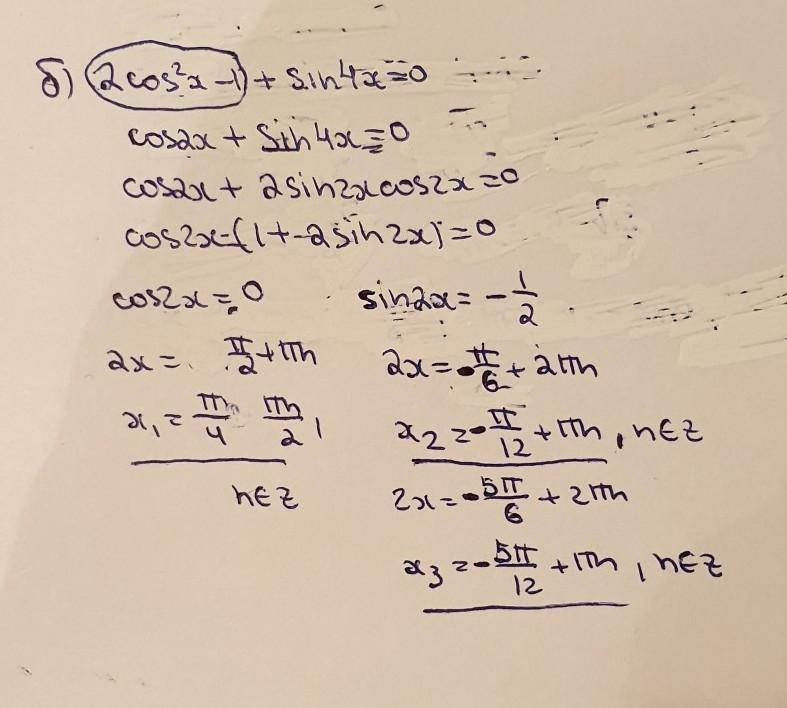 б) (2cos²x -1) + sin4x=0
cos2x + sin4x=0
cos2x + 2sin2xcos2x=0
cos2x·(1+2sin2x)=0
cos2x=0
2x= π/2+πn
x₁=πn/4 πn/2,
n∈Z
sin2x= -1/2
2x=-π/6+2πn
x₂=-π/12+πn, n∈Z
2x=-5π/6+2πn
x₃=-5π/12+πn, n∈Z